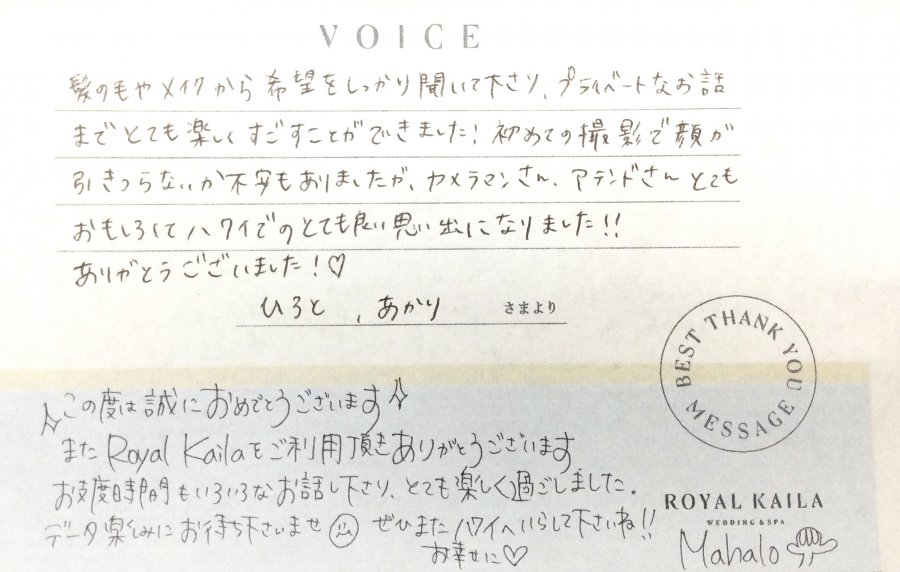 VOICE
髪の毛やメイクから希望をしっかり聞いて下さり、プライベートなお話
までとても楽しくすごすことができました！初めての撮影で顔が
引きつらないか不安もありましたが、カメラマンさん、アテンドさんとても
おもしろくてハワイでのとても良い思い出になりました!!
ありがとうございました！♡
ひろと、あかり さまより
BEST THANK YOU MESSAGE
この度は誠におめでとうございます
また Royal Kailaをご利用頂きありがとうございます
お支度時間もいろいろなお話し下さり、とても楽しく過ごしました。
データ楽しみにお待ち下さいませ ぜひまたハワイへいらして下さいね!!
お幸せに♡
ROYAL KAILA
WEDDING & SPA
Mahalo